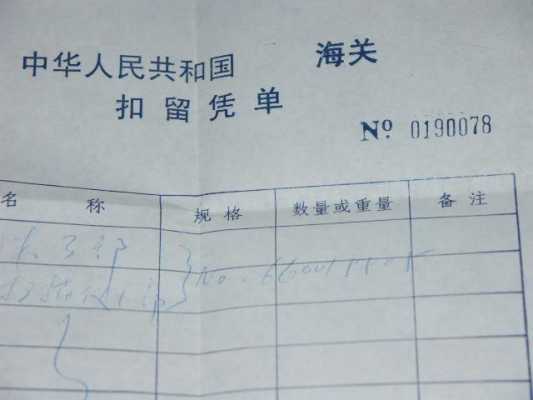 中华人民共和国 海关
扣留凭单
Nº 0190078
名称 规格 数量或重量 备注
No.